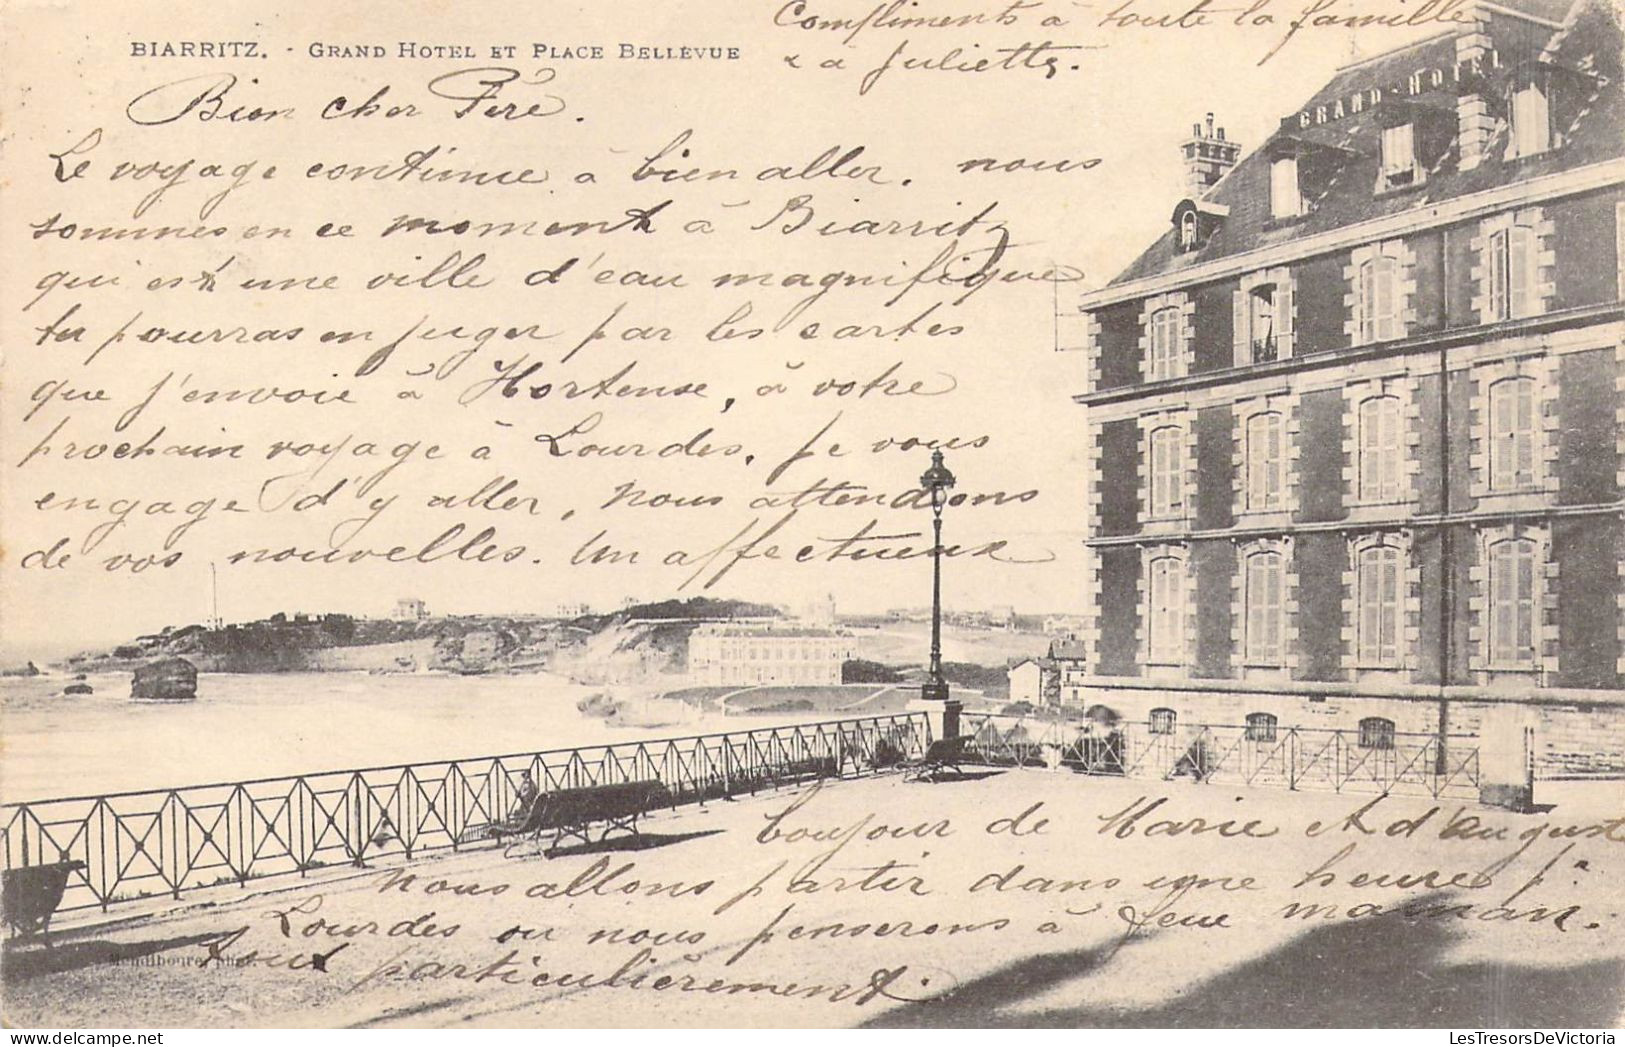 Compliments à toute la famille
& à Juliette.
BIARRITZ. - GRAND HOTEL ET PLACE BELLEVUE
GRAND-HOTEL
Bien cher Père.
Le voyage continue à bien aller. nous
sommes en ce moment à Biarritz
qui est une ville d'eau magnifique
tu pourras en juger par les cartes
que j'envoie à Hortense, à votre
prochain voyage à Lourdes. je vous
engage d'y aller, nous attendons
de vos nouvelles. Un affectueux
bonjour de Marie et d'August
nous allons partir dans une heure pr
Lourdes ou nous penserons à feue maman.
tout particulièrement.
Mendiboure, phot.
LesTresorsDeVictoria